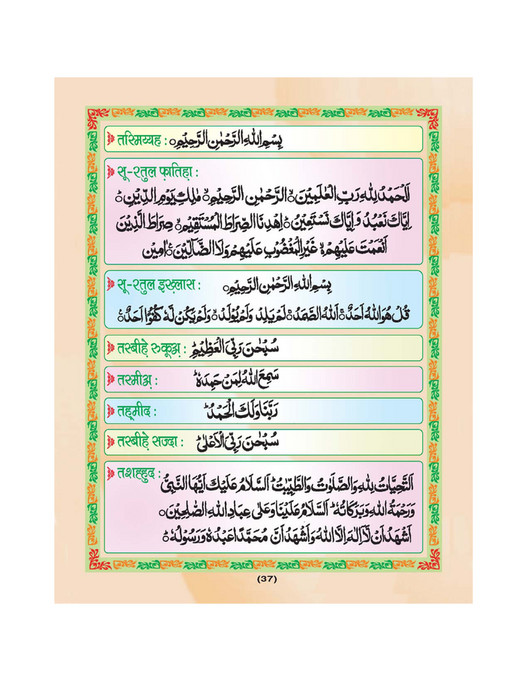 तस्मिय्यह : بِسْمِ اللهِ الرَّحْمٰنِ الرَّحِيْمِ ○
सू-रतुल फ़ातिहा :
اَلْحَمْدُ لِلّٰهِ رَبِّ الْعٰلَمِيْنَ ۙ الرَّحْمٰنِ الرَّحِيْمِ ۙ مٰلِكِ يَوْمِ الدِّيْنِ ؕ
اِيَّاكَ نَعْبُدُ وَ اِيَّاكَ نَسْتَعِيْنُ ؕ اِهْدِنَا الصِّرَاطَ الْمُسْتَقِيْمَ ۙ صِرَاطَ الَّذِيْنَ
اَنْعَمْتَ عَلَيْهِمْ ۙ غَيْرِ الْمَغْضُوْبِ عَلَيْهِمْ وَلَا الضَّآلِّيْنَ ؕ اٰمِيْن
सू-रतुल इख़्लास : بِسْمِ اللهِ الرَّحْمٰنِ الرَّحِيْمِ ○
قُلْ هُوَ اللهُ اَحَدٌ ۚ اَللهُ الصَّمَدُ ۚ لَمْ يَلِدْ وَلَمْ يُوْلَدْ ۙ وَلَمْ يَكُنْ لَّهٗ كُفُوًا اَحَدٌ ؕ
तस्बीहे रुकूअ़ : سُبْحٰنَ رَبِّيَ الْعَظِيْمِ ؕ
तस्मीअ़ : سَمِعَ اللهُ لِمَنْ حَمِدَهٗ ؕ
तह़्मीद : رَبَّنَا وَلَكَ الْحَمْدُ ؕ
तस्बीहे सज्दा : سُبْحٰنَ رَبِّيَ الْاَعْلٰى ؕ
तशह्हुद :
اَلتَّحِيَّاتُ لِلّٰهِ وَالصَّلَوٰتُ وَالطَّيِّبٰتُ ؕ اَلسَّلَامُ عَلَيْكَ اَيُّهَا النَّبِيُّ
وَرَحْمَةُ اللهِ وَبَرَكَاتُهٗ ؕ اَلسَّلَامُ عَلَيْنَا وَعَلٰى عِبَادِ اللهِ الصّٰلِحِيْنَ ○
اَشْهَدُ اَنْ لَّآ اِلٰهَ اِلَّا اللهُ وَاَشْهَدُ اَنَّ مُحَمَّدًا عَبْدُهٗ وَرَسُوْلُهٗ ؕ
(37)